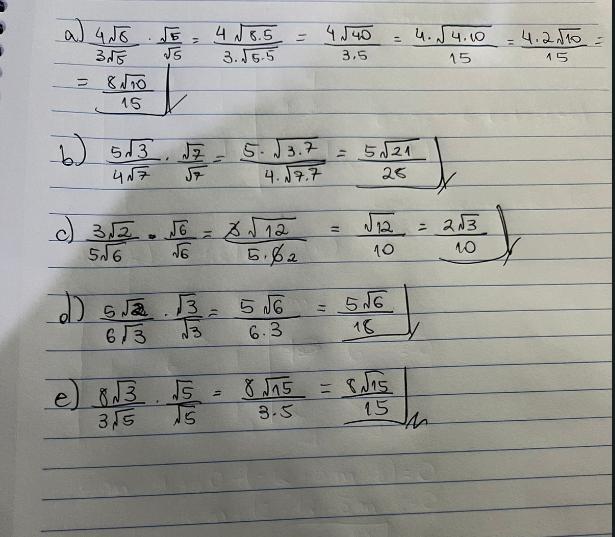 a) 4√8/3√5 · √5/√5 = 4√8.5/3.√5.5 = 4√40/3.5 = 4.√4.10/15 = 4.2√10/15 =
= 8√10/15
b) 5√3/4√7 · √7/√7 = 5.√3.7/4.√7.7 = 5√21/28
c) 3√2/5√6 · √6/√6 = 3√12/5.6 2 = √12/10 = 2√3/10
d) 5√2/6√3 · √3/√3 = 5√6/6.3 = 5√6/18
e) 8√3/3√5 · √5/√5 = 8√15/3.5 = 8√15/15